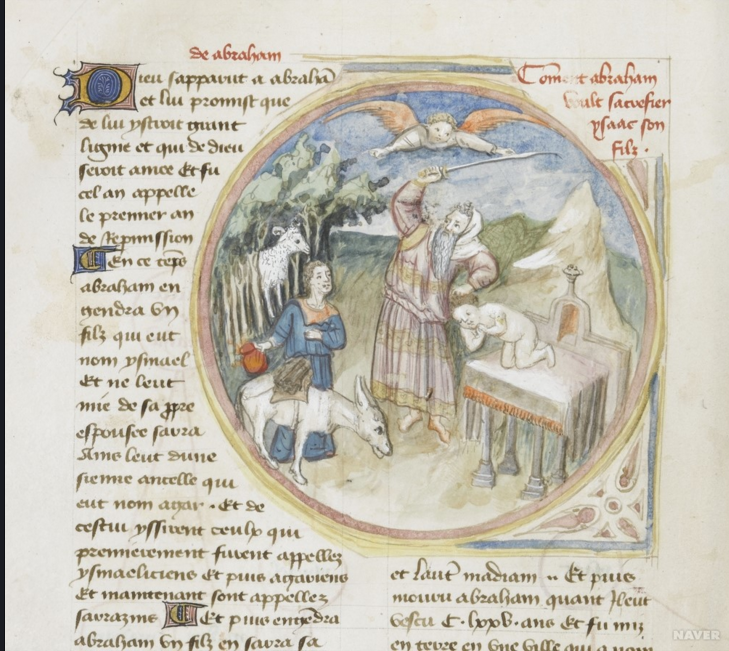 de abraham
Dieu sapparut a abrahã
et lui promist que
de lui ystroit grant
lignie et qui de dieu
seroit amee Et fu
cel an appelle
le premier an
de repmission
En ce tẽps
abraham en
gendra vn
filz qui eut
nom ysmael
Et ne leut
mie de sa ppre
espousee sarra
Ains leut dune
sienne ancelle qui
eut nom agar · Et de
cestui yssirent ceulx qui
premierement furent appellez
ysmaeliciens Et puis agariens
Et maintenant sont appellez
sarrazins Et puis engẽdra
abraham vn filz en sarra sa
Coment abraham
voult sacrefier
ysaac son
filz ·
et lautr madian ·· Et puis
mouru abraham quant Il eut
vescu C · lxxv · ans Et fu mis
en terre en vne ville qui a nom
NAVER